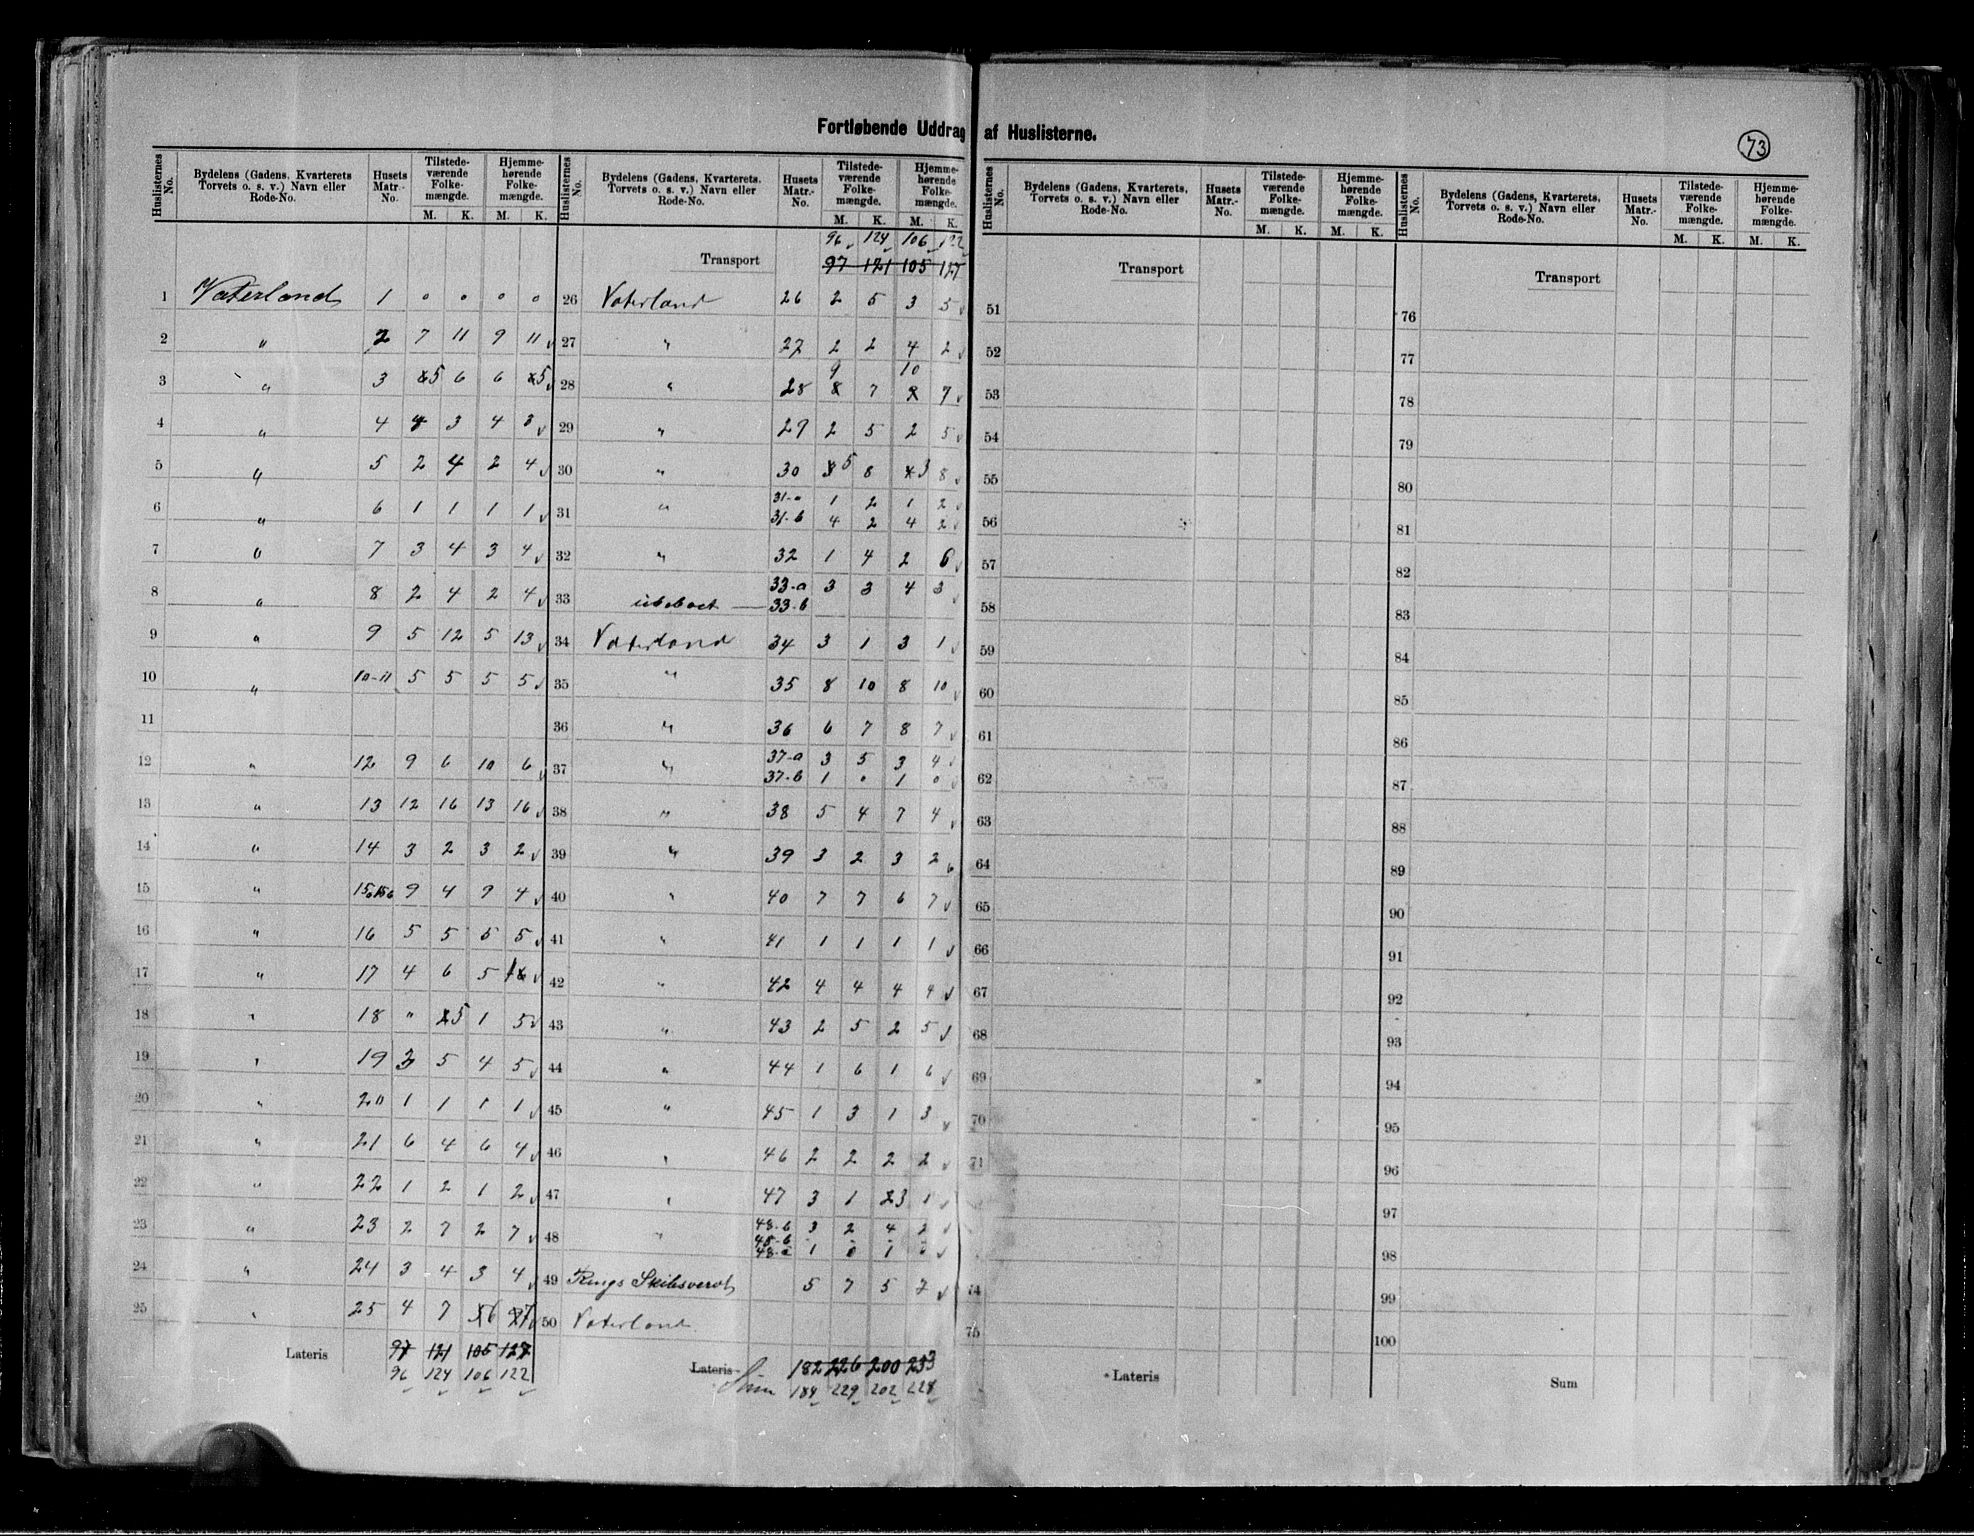 Fortløbende Uddrag af Huslisterne.
73
Huslisternes No. Bydelens (Gadens, Kvarterets Torvets o. s. v.) Navn eller Rode-No. Husets Matr.-No. Tilstedeværende Folkemængde. M. K. Hjemmehørende Folkemængde. M. K.
1 Vaterland 1 0 0 0 0
2 " 2 7 11 9 11
3 " 3 5 6 6 5
4 " 4 4 3 4 3
5 " 5 2 4 2 4
6 " 6 1 1 1 1
7 " 7 3 4 3 4
8 " 8 2 4 2 4
9 " 9 5 12 5 13
10 " 10-11 5 5 5 5
11
12 " 12 9 6 10 6
13 " 13 12 16 13 16
14 " 14 3 2 3 2
15 " 9 4 9 4
16 " 16 5 5 5 5
17 " 17 4 6 5
18 " 18 " 5 1 5
19 " 19 3 5 4 5
20 " 20 1 1 1 1
21 " 21 6 4 6 4
22 " 22 1 2 1 2
23 " 23 2 7 2 7
24 " 24 3 4 3 4
25 " 25 4 7 6 7
Lateris 97 121 105 127
96 124 106 122
Huslisternes No. Bydelens (Gadens, Kvarterets, Torvets o. s. v.) Navn eller Rode-No. Husets Matr.-No. Tilstedeværende Folkemængde. M. K. Hjemmehørende Folkemængde. M. K.
96 124 106 122
Transport 97 121 105 127
26 Vaterland 26 2 5 3 5
27 " 27 2 2 4 2
9 10
28 " 28 8 7 9 7
29 " 29 2 5 2 5
30 " 30 5 8 3 8
31 " 31-a 1 2 1 2
31-b 4 2 4 2
32 " 32 1 4 2 6
33 33-a 3 3 4 3
ubeboet 33-b
34 Vaterland 34 3 1 3 1
35 " 35 8 10 8 10
36 " 36 6 7 8 7
37 " 37-a 3 5 3 4
37-b 1 0 1 0
38 " 38 5 4 7 4
39 " 39 3 2 3 2
40 " 40 7 7 6 7
41 " 41 1 1 1 1
42 " 42 4 4 4 4
43 " 43 2 5 2 5
44 " 44 1 6 1 6
45 " 45 1 3 1 3
46 " 46 2 2 2 2
47 " 47 3 1 3 1
48 " 48-b 3 2 4 2
48-a 1 0 1 0
49 Rings Skibsverft 5 7 5 7
50 Vaterland
Lateris 182 226 200 233
Sum 184 229 202 228
Huslisternes No. Bydelens (Gadens, Kvarterets, Torvets o. s. v.) Navn eller Rode-No. Husets Matr.-No. Tilstedeværende Folkemængde. M. K. Hjemmehørende Folkemængde. M. K.
Transport
51
52
53
54
55
56
57
58
59
60
61
62
63
64
65
66
67
68
69
70
71
74
75
Lateris
Huslisternes No. Bydelens (Gadens, Kvarterets, Torvets o. s. v.) Navn eller Rode-No. Husets Matr.-No. Tilstedeværende Folkemængde. M. K. Hjemmehørende Folkemængde. M. K.
Transport
76
77
78
79
80
81
82
83
84
85
86
87
88
89
90
91
92
93
94
95
96
97
98
99
100
Sum